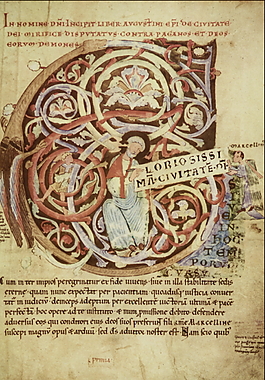 IN NOMINE DNI INCIPIT LIBER AUGUSTINI EPI DE CIVITATE
DEI MIRIFICE DISPUTATUS CONTRA PAGANOS ET DEOS
EORUM DEMONES
G
LORIOSISSI
MA CIVITATE DEI
Marcelli
SIVE
IN
HOC
TEM
PORU
CURSU
cum inter impios peregrinatur ex fide vivens sive in illa stabilitate sedis
eterne quam nunc expectat per pacientiam quoadusq; justicia conver
tat in judiciu deinceps adeptura per excellentia victoria ultima & pace
perfecta hoc opere ad te instituto & mea promissione debito defendere
adversus eos qui conditori ejus deos suos preferunt fili kme Marcelline
suscepi magnu opus & arduu sed ds adjutor noster est. Nam scio quib